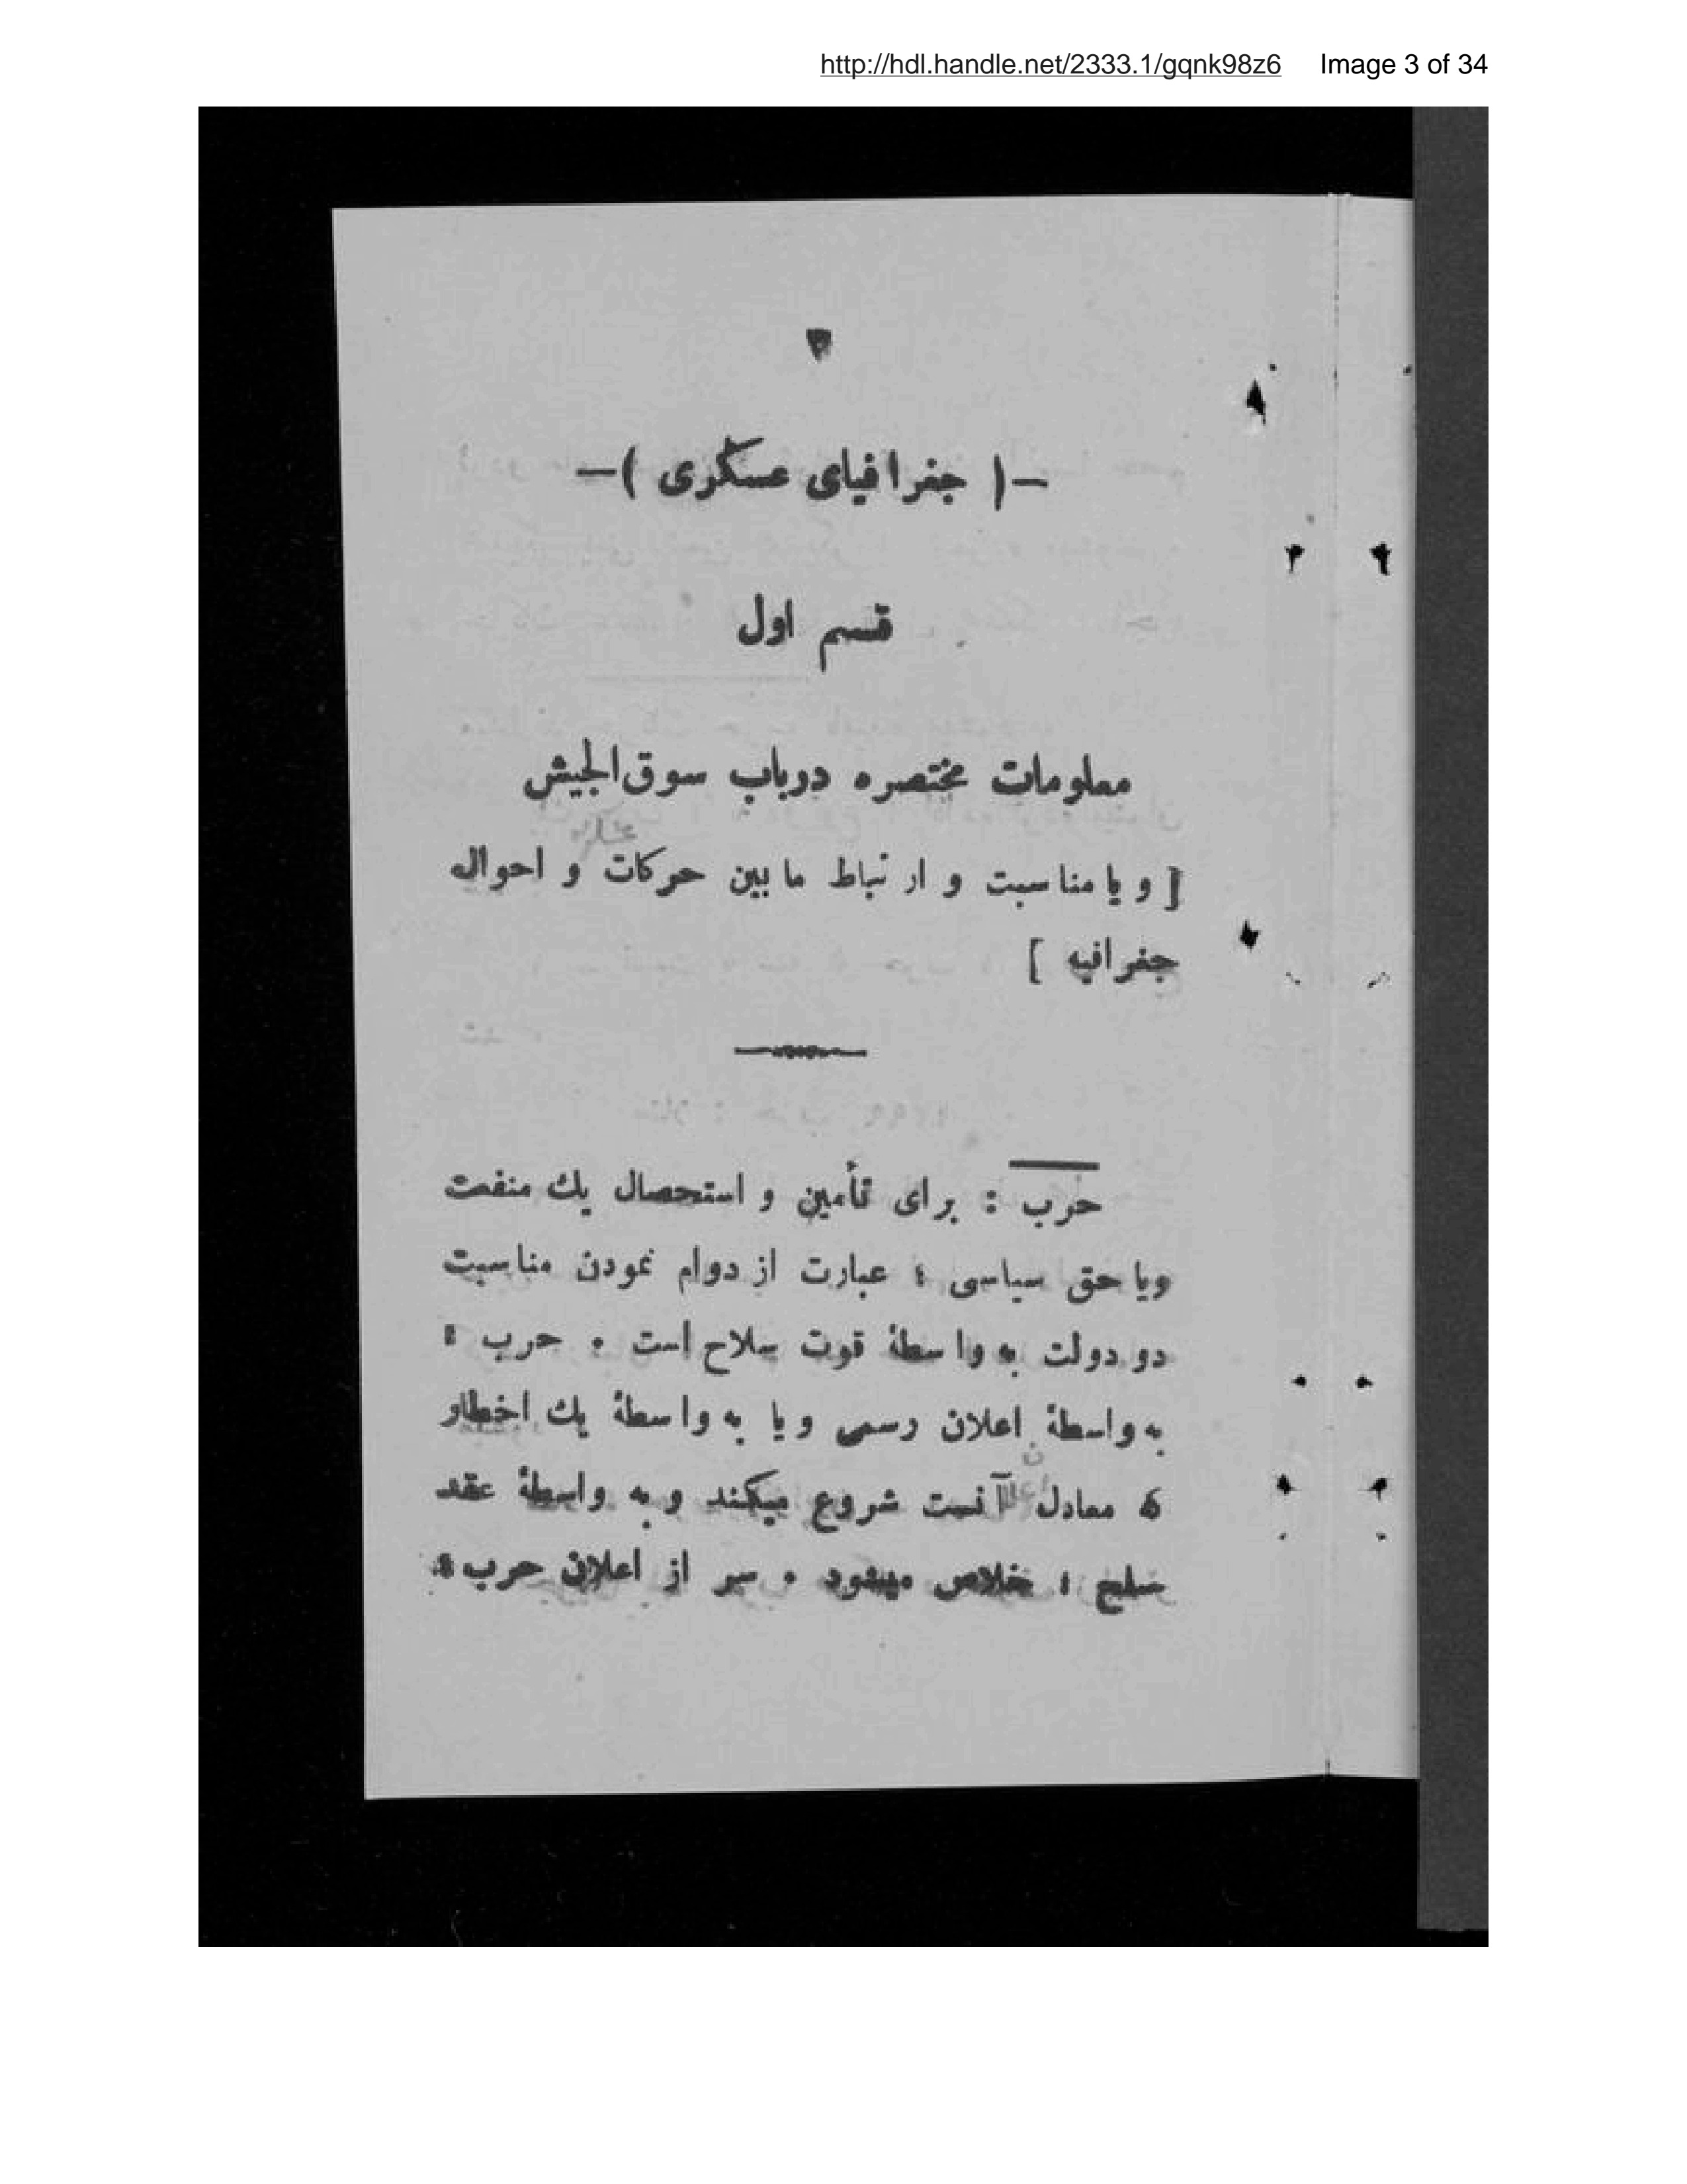 http://hdl.handle.net/2333.1/gqnk98z6 Image 3 of 34
۳
—( جغرافیای عسکری )—
قسم اول
معلومات مختصره درباب سوق‌الجیش
[ و یا مناسبت و ارتباط ما بین حرکات و احوال
جغرافیه ]
حرب : برای تأمین و استحصال یك منفعت
ویا حق سیاسی ؛ عبارت از دوام نمودن مناسبت
دو دولت به واسطهٔ قوت سلاح است . حرب :
به واسطهٔ اعلان رسمی و یا به واسطهٔ یك اخطار
که معادل آنست شروع میکند و به واسطهٔ عقد
صلح ؛ خلاص میشود . سر از اعلان حرب :